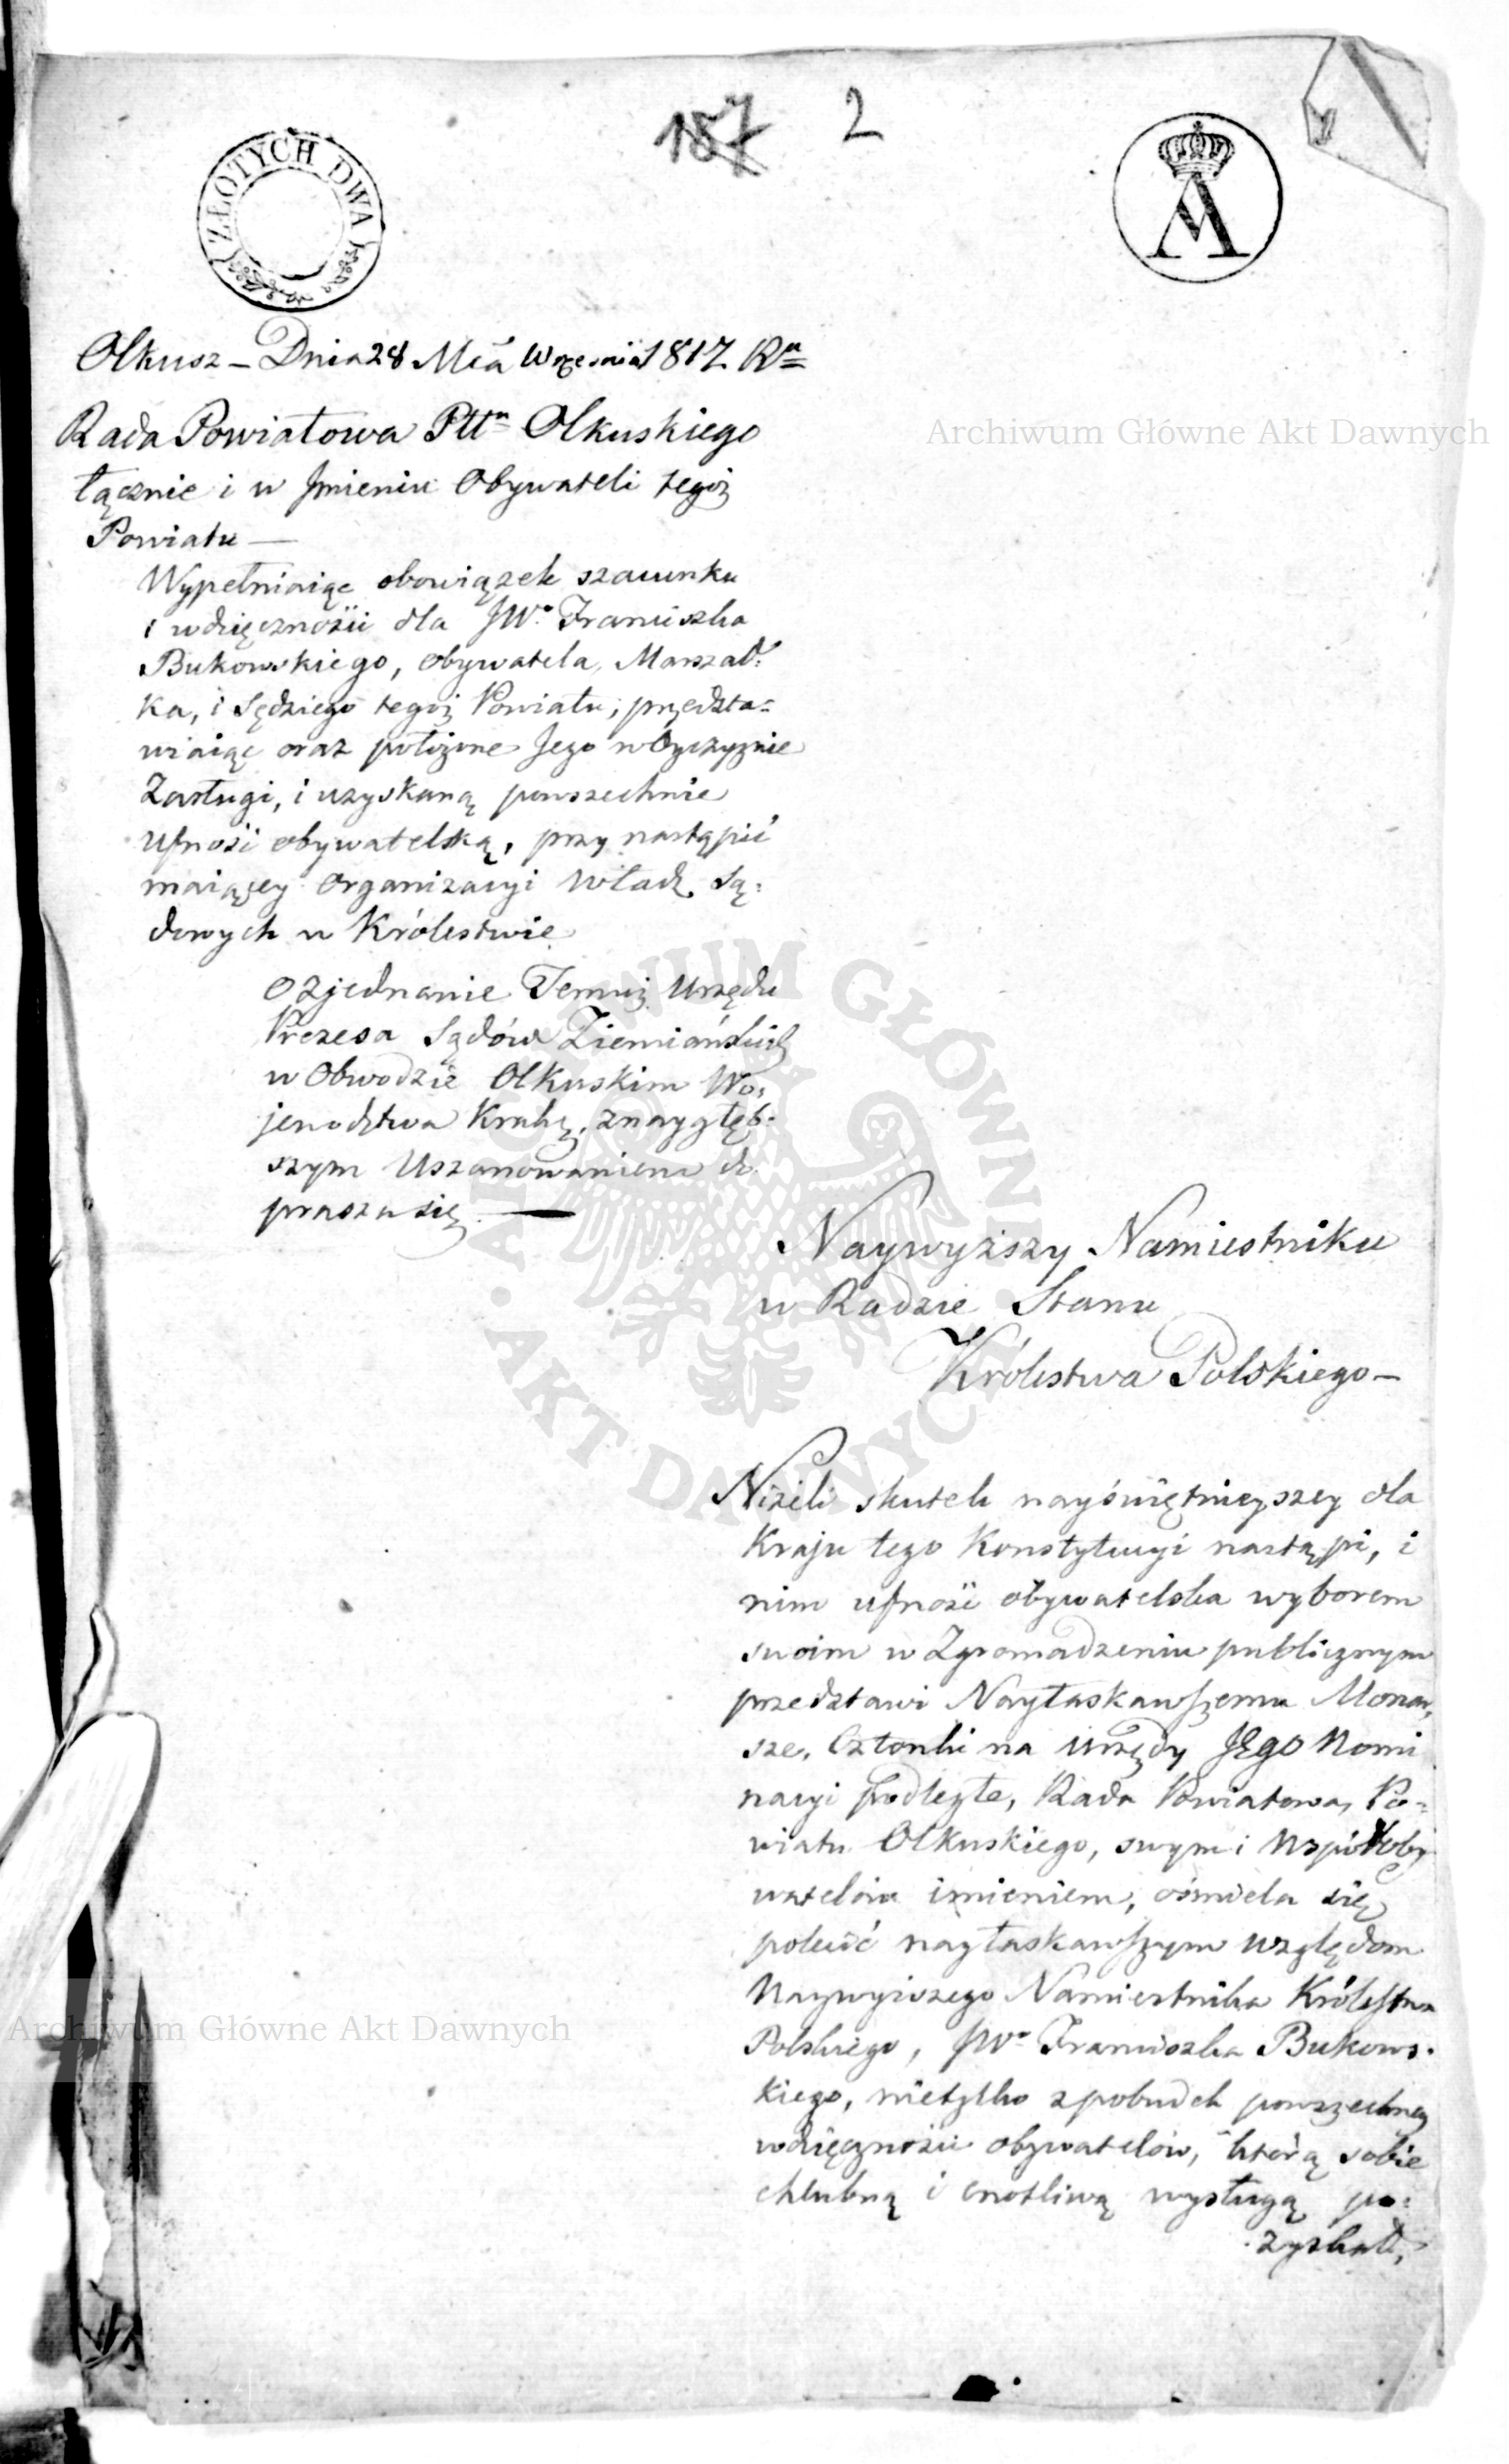 187 2
ZŁOTYCH DWA
Olkusz – Dnia 28 Mca Września 1817 Ru
Rada Powiatowa Pttu Olkuskiego
łącznie i w Jmieniu Obywateli tegoż
Powiatu —
Wypełniaiąc obowiązek szacunku
i wdzięczności dla JW. Franciszka
Bukowskiego, obywatela, Marszał:
ka, i Sędziego tegoż Powiatu, przedsta:
wiaiąc oraz położone Jego w Oyczyznie
Zasługi, i uzyskaną powszechnie
Ufność obywatelską, przy nastąpić
maiącey organizacyi Władz Są:
dowych w Królestwie
o zjednanie Temuż Urzędu
Prezesa Sądów Ziemiańskich
w Obwodzie Olkuskim Wo:
jewództwa Krakę. z naygłęb:
szym Uszanowaniem do
prasza się —
Naywyższy Namiestniku
w Radzie Stanu
Królestwa Polskiego –
Niżeli skutek nayświętnieyszey dla
Kraju tego Konstytucyi nastąpi, i
nim ufność obywatelska wyborem
swoim w Zgromadzeniu publicznym
przedstawi Nayłaskawszemu Monar,
sze, Członki na Urzędy JEgo Nomi
nacyi podległe, Rada Powiatowa, Po:
wiatu Olkuskiego, swym i Współoby
watelów imieniem, ośmiela się
polecić nayłaskawszym względom
Naywyższego Namiestnika Królestwa
Polskiego, JWo Franciszka Bukows:
kiego, nietylko z pobudek powszechney
wdzięczności obywatelów, którą sobie
chlubną i cnotliwą wysługą po:
zyskał,
Archiwum Główne Akt Dawnych
Archiwum Główne Akt Dawnych
ARCHIWUM GŁÓWNE AKT DAWNYCH